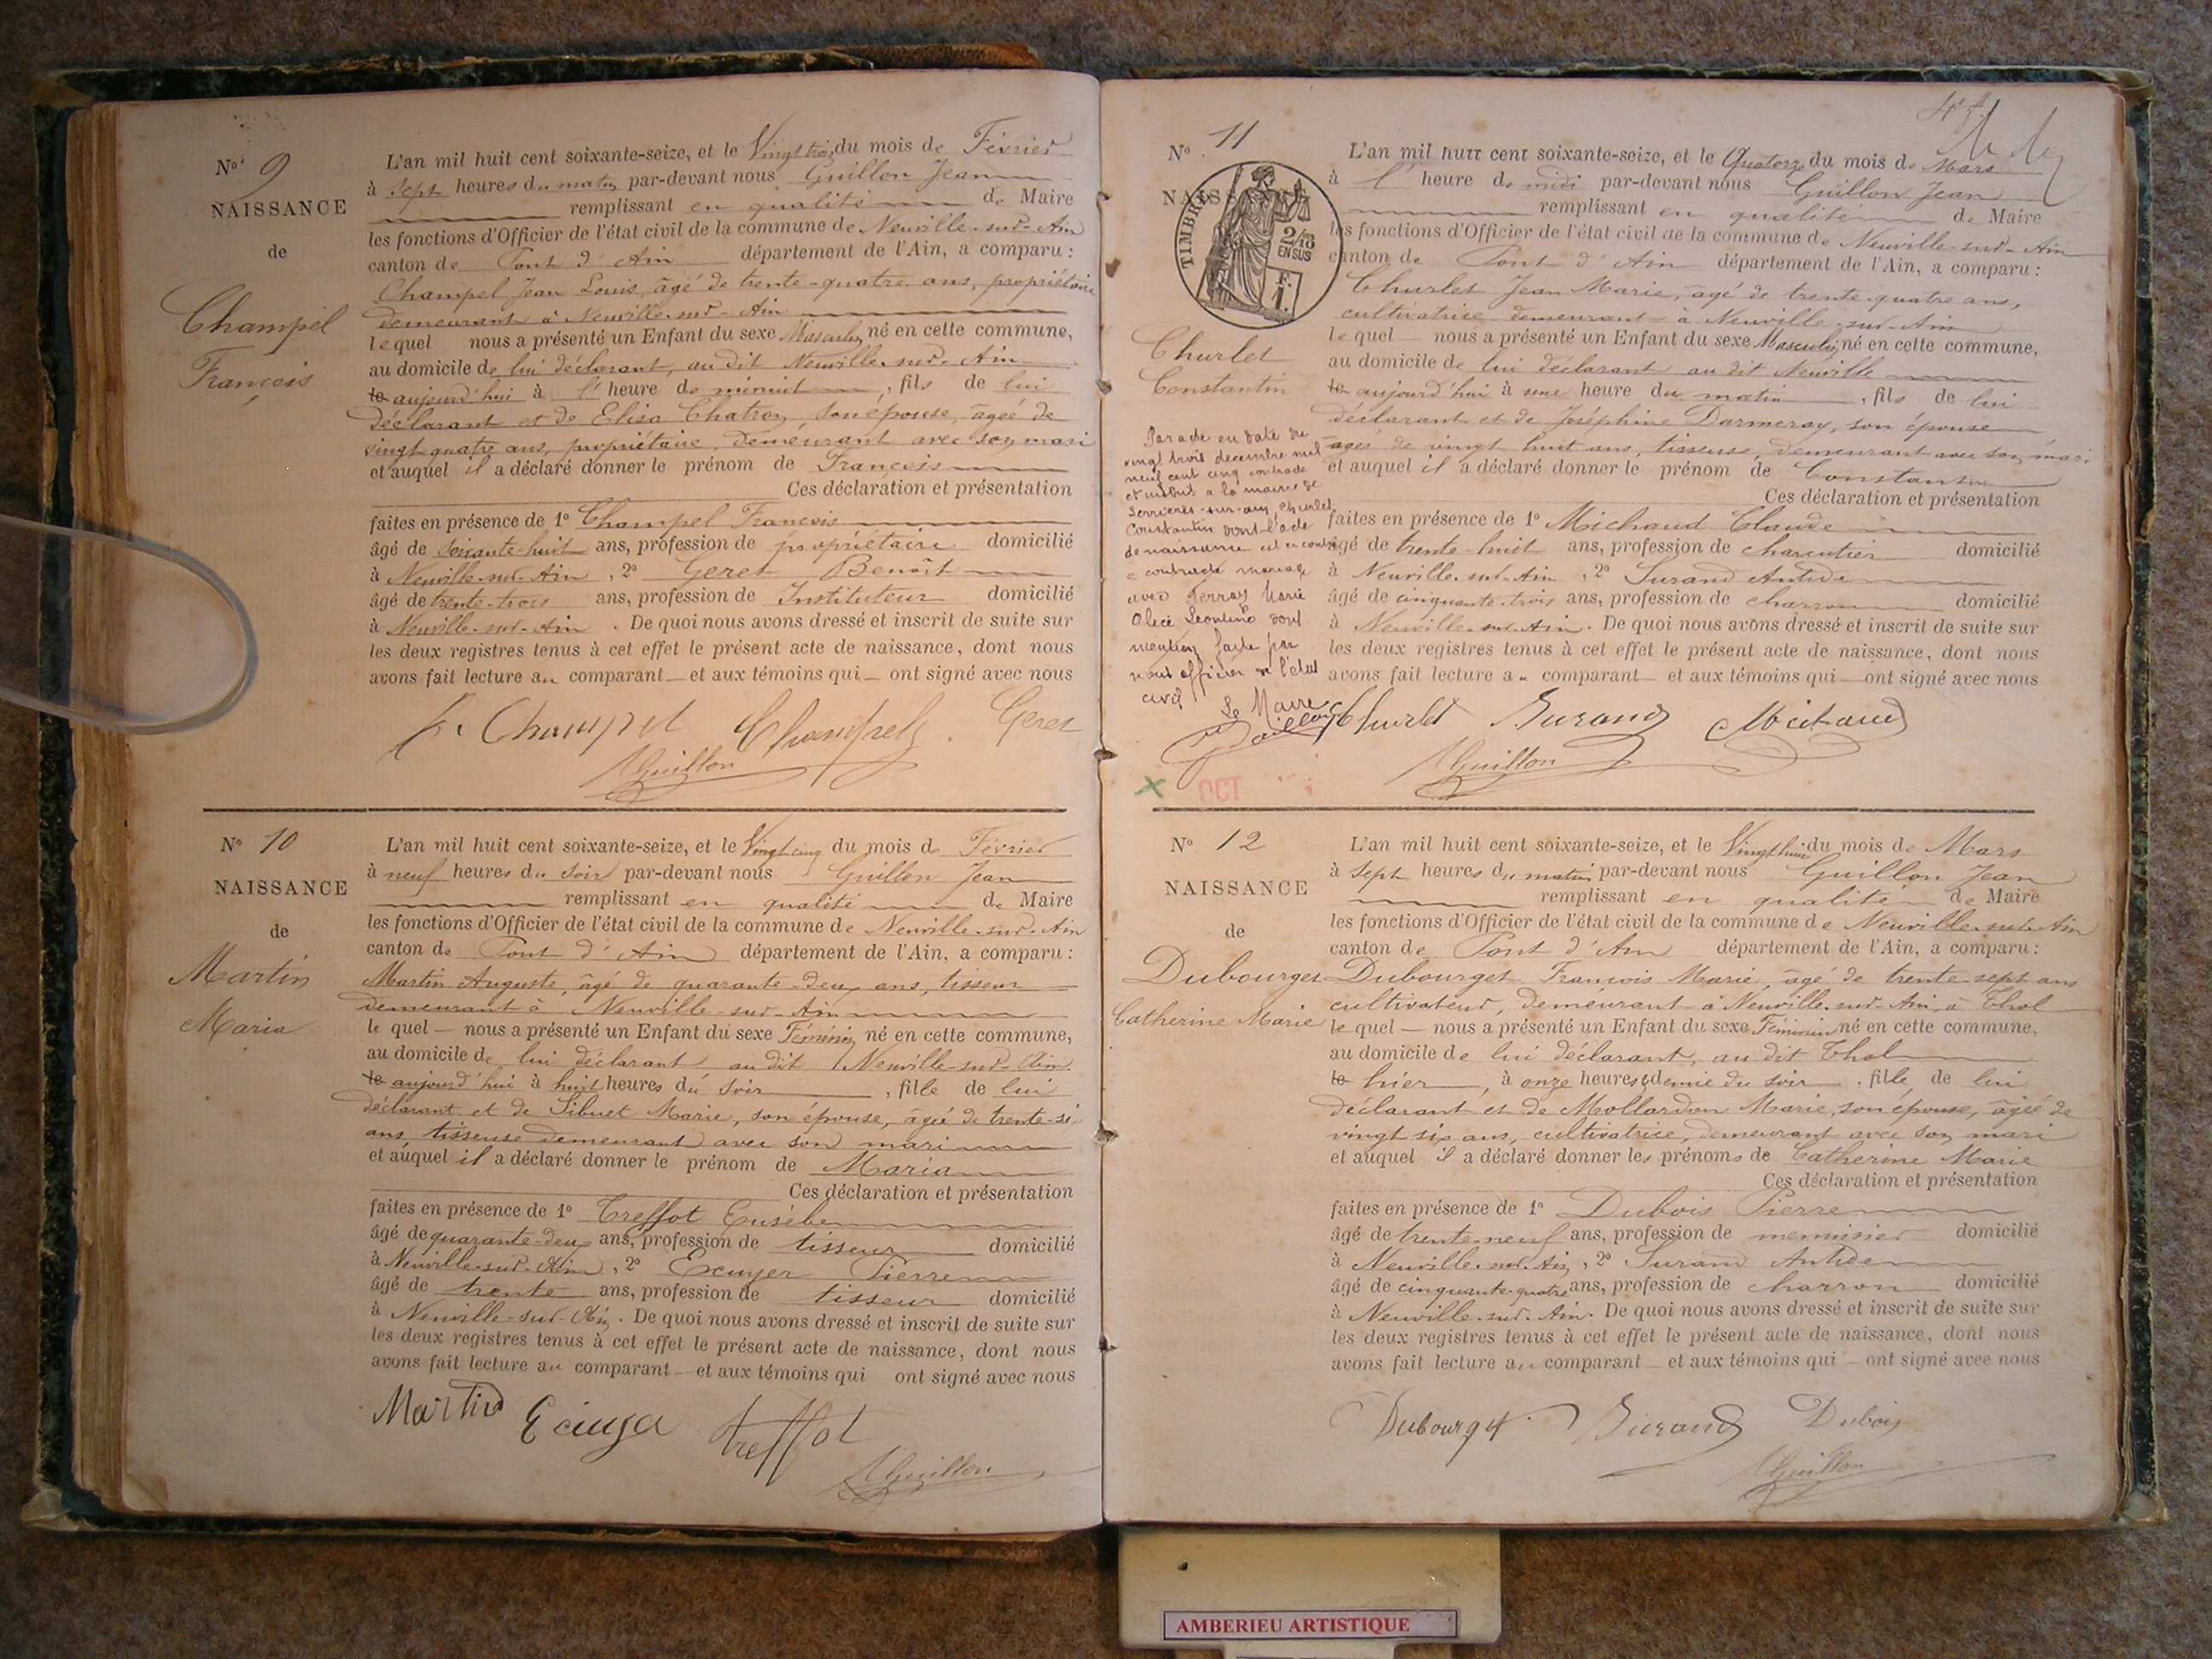 N° 9
NAISSANCE
de
Champel
François
L'an mil huit cent soixante-seize, et le Vingt trois du mois de Février
à sept heures du matin par-devant nous Guillon Jean
remplissant en qualité de Maire
les fonctions d'Officier de l'état civil de la commune de Neuville-sur-Ain
canton de Pont d'Ain département de l'Ain, a comparu :
Champel Jean Louis, âgé de trente-quatre ans, propriétaire
demeurant à Neuville-sur-Ain
lequel nous a présenté un Enfant du sexe Masculin né en cette commune,
au domicile de lui déclarant, au dit Neuville-sur-Ain
le aujourd'hui à l' heure de minuit, fils de lui
déclarant et de Elisa Chatron, son épouse, âgée de
vingt quatre ans, propriétaire, demeurant avec son mari
et auquel il a déclaré donner le prénom de François
Ces déclaration et présentation
faites en présence de 1° Champel François
âgé de soixante-huit ans, profession de propriétaire domicilié
à Neuville-sur-Ain, 2° Geret Benoît
âgé de trente-trois ans, profession de Instituteur domicilié
à Neuville-sur-Ain. De quoi nous avons dressé et inscrit de suite sur
les deux registres tenus à cet effet le présent acte de naissance, dont nous
avons fait lecture au comparant et aux témoins qui ont signé avec nous
Champel Champel Geret
Guillon
N° 10
NAISSANCE
de
Martin
Maria
L'an mil huit cent soixante-seize, et le Vingt cinq du mois de Février
à neuf heures du soir par-devant nous Guillon Jean
remplissant en qualité de Maire
les fonctions d'Officier de l'état civil de la commune de Neuville-sur-Ain
canton de Pont d'Ain département de l'Ain, a comparu :
Martin Auguste, âgé de quarante-deux ans, tisseur
demeurant à Neuville-sur-Ain
le quel nous a présenté un Enfant du sexe Féminin né en cette commune,
au domicile de lui déclarant au dit Neuville-sur-Ain
le aujourd'hui à huit heures du soir, fille de lui
déclarant et de Sibuet Marie, son épouse, âgée de trente-six
ans, tisseuse demeurant avec son mari
et auquel il a déclaré donner le prénom de Maria
Ces déclaration et présentation
faites en présence de 1° Treffot Eusèbe
âgé de quarante-deux ans, profession de tisseur domicilié
à Neuville-sur-Ain, 2° Ecuyer Pierre
âgé de trente ans, profession de tisseur domicilié
à Neuville-sur-Ain. De quoi nous avons dressé et inscrit de suite sur
les deux registres tenus à cet effet le présent acte de naissance, dont nous
avons fait lecture au comparant et aux témoins qui ont signé avec nous
Martin Treffot
Guillon
N° 11
NAISSANCE
TIMBRE
2/10
EN SUS
F.
1.
Churlet
Constantin
L'an mil huit cent soixante-seize, et le Quatorze du mois de Mars
à l' heure de midi par-devant nous Guillon Jean
remplissant en qualité de Maire
les fonctions d'Officier de l'état civil de la commune de Neuville-sur-Ain
canton de Pont d'Ain département de l'Ain, a comparu :
Churlet Jean Marie, âgé de trente-quatre ans,
cultivatrice demeurant à Neuville-sur-Ain
lequel nous a présenté un Enfant du sexe Masculin né en cette commune,
au domicile de lui déclarant au dit Neuville
le aujourd'hui à une heure du matin, fils de lui
déclarant et de Joséphine Darmeray, son épouse
âgée de vingt huit ans, tisseuse, demeurant avec son mari
et auquel il a déclaré donner le prénom de Constantin
Ces déclaration et présentation
faites en présence de 1° Michaud Claude
âgé de trente-huit ans, profession de charcutier domicilié
à Neuville-sur-Ain, 2° Surand Antide
âgé de cinquante-trois ans, profession de charron domicilié
à Neuville-sur-Ain. De quoi nous avons dressé et inscrit de suite sur
les deux registres tenus à cet effet le présent acte de naissance, dont nous
avons fait lecture au comparant et aux témoins qui ont signé avec nous
Par acte en date du
vingt trois decembre mil
neuf cent cinq contracté
et inscrit a la mairie de
Serrieres-sur-ain, Churlet
Constantin dont l'acte
de naissance est ci contre
a contracté mariage
avec Perray Marie
Alice Leontine dont
mention faite par
nous officier de l'état
civil
Le Maire
Churlet Surand Michaud
Guillon
OCT
N° 12
NAISSANCE
de
Dubourget
Catherine Marie
L'an mil huit cent soixante-seize, et le Vingt huit du mois de Mars
à sept heures du matin par-devant nous Guillon Jean
remplissant en qualité de Maire
les fonctions d'Officier de l'état civil de la commune de Neuville-sur-Ain
canton de Pont d'Ain département de l'Ain, a comparu :
Dubourget François Marie, âgé de trente-sept ans
cultivateur, demeurant à Neuville-sur-Ain, à Thol
le quel nous a présenté un Enfant du sexe Féminin né en cette commune,
au domicile de lui déclarant, au dit Thol
le hier, à onze heures & demie du soir, fille de lui
déclarant et de Mollardon Marie, son épouse, âgée de
vingt six ans, cultivatrice, demeurant avec son mari
et auquel il a déclaré donner les prénoms de Catherine Marie
Ces déclaration et présentation
faites en présence de 1° Dubois Pierre
âgé de trente-neuf ans, profession de menuisier domicilié
à Neuville-sur-Ain, 2° Surand Antide
âgé de cinquante-quatre ans, profession de charron domicilié
à Neuville-sur-Ain. De quoi nous avons dressé et inscrit de suite sur
les deux registres tenus à cet effet le présent acte de naissance, dont nous
avons fait lecture au comparant et aux témoins qui ont signé avec nous
Dubourget Surand Dubois
Guillon
AMBERIEU ARTISTIQUE